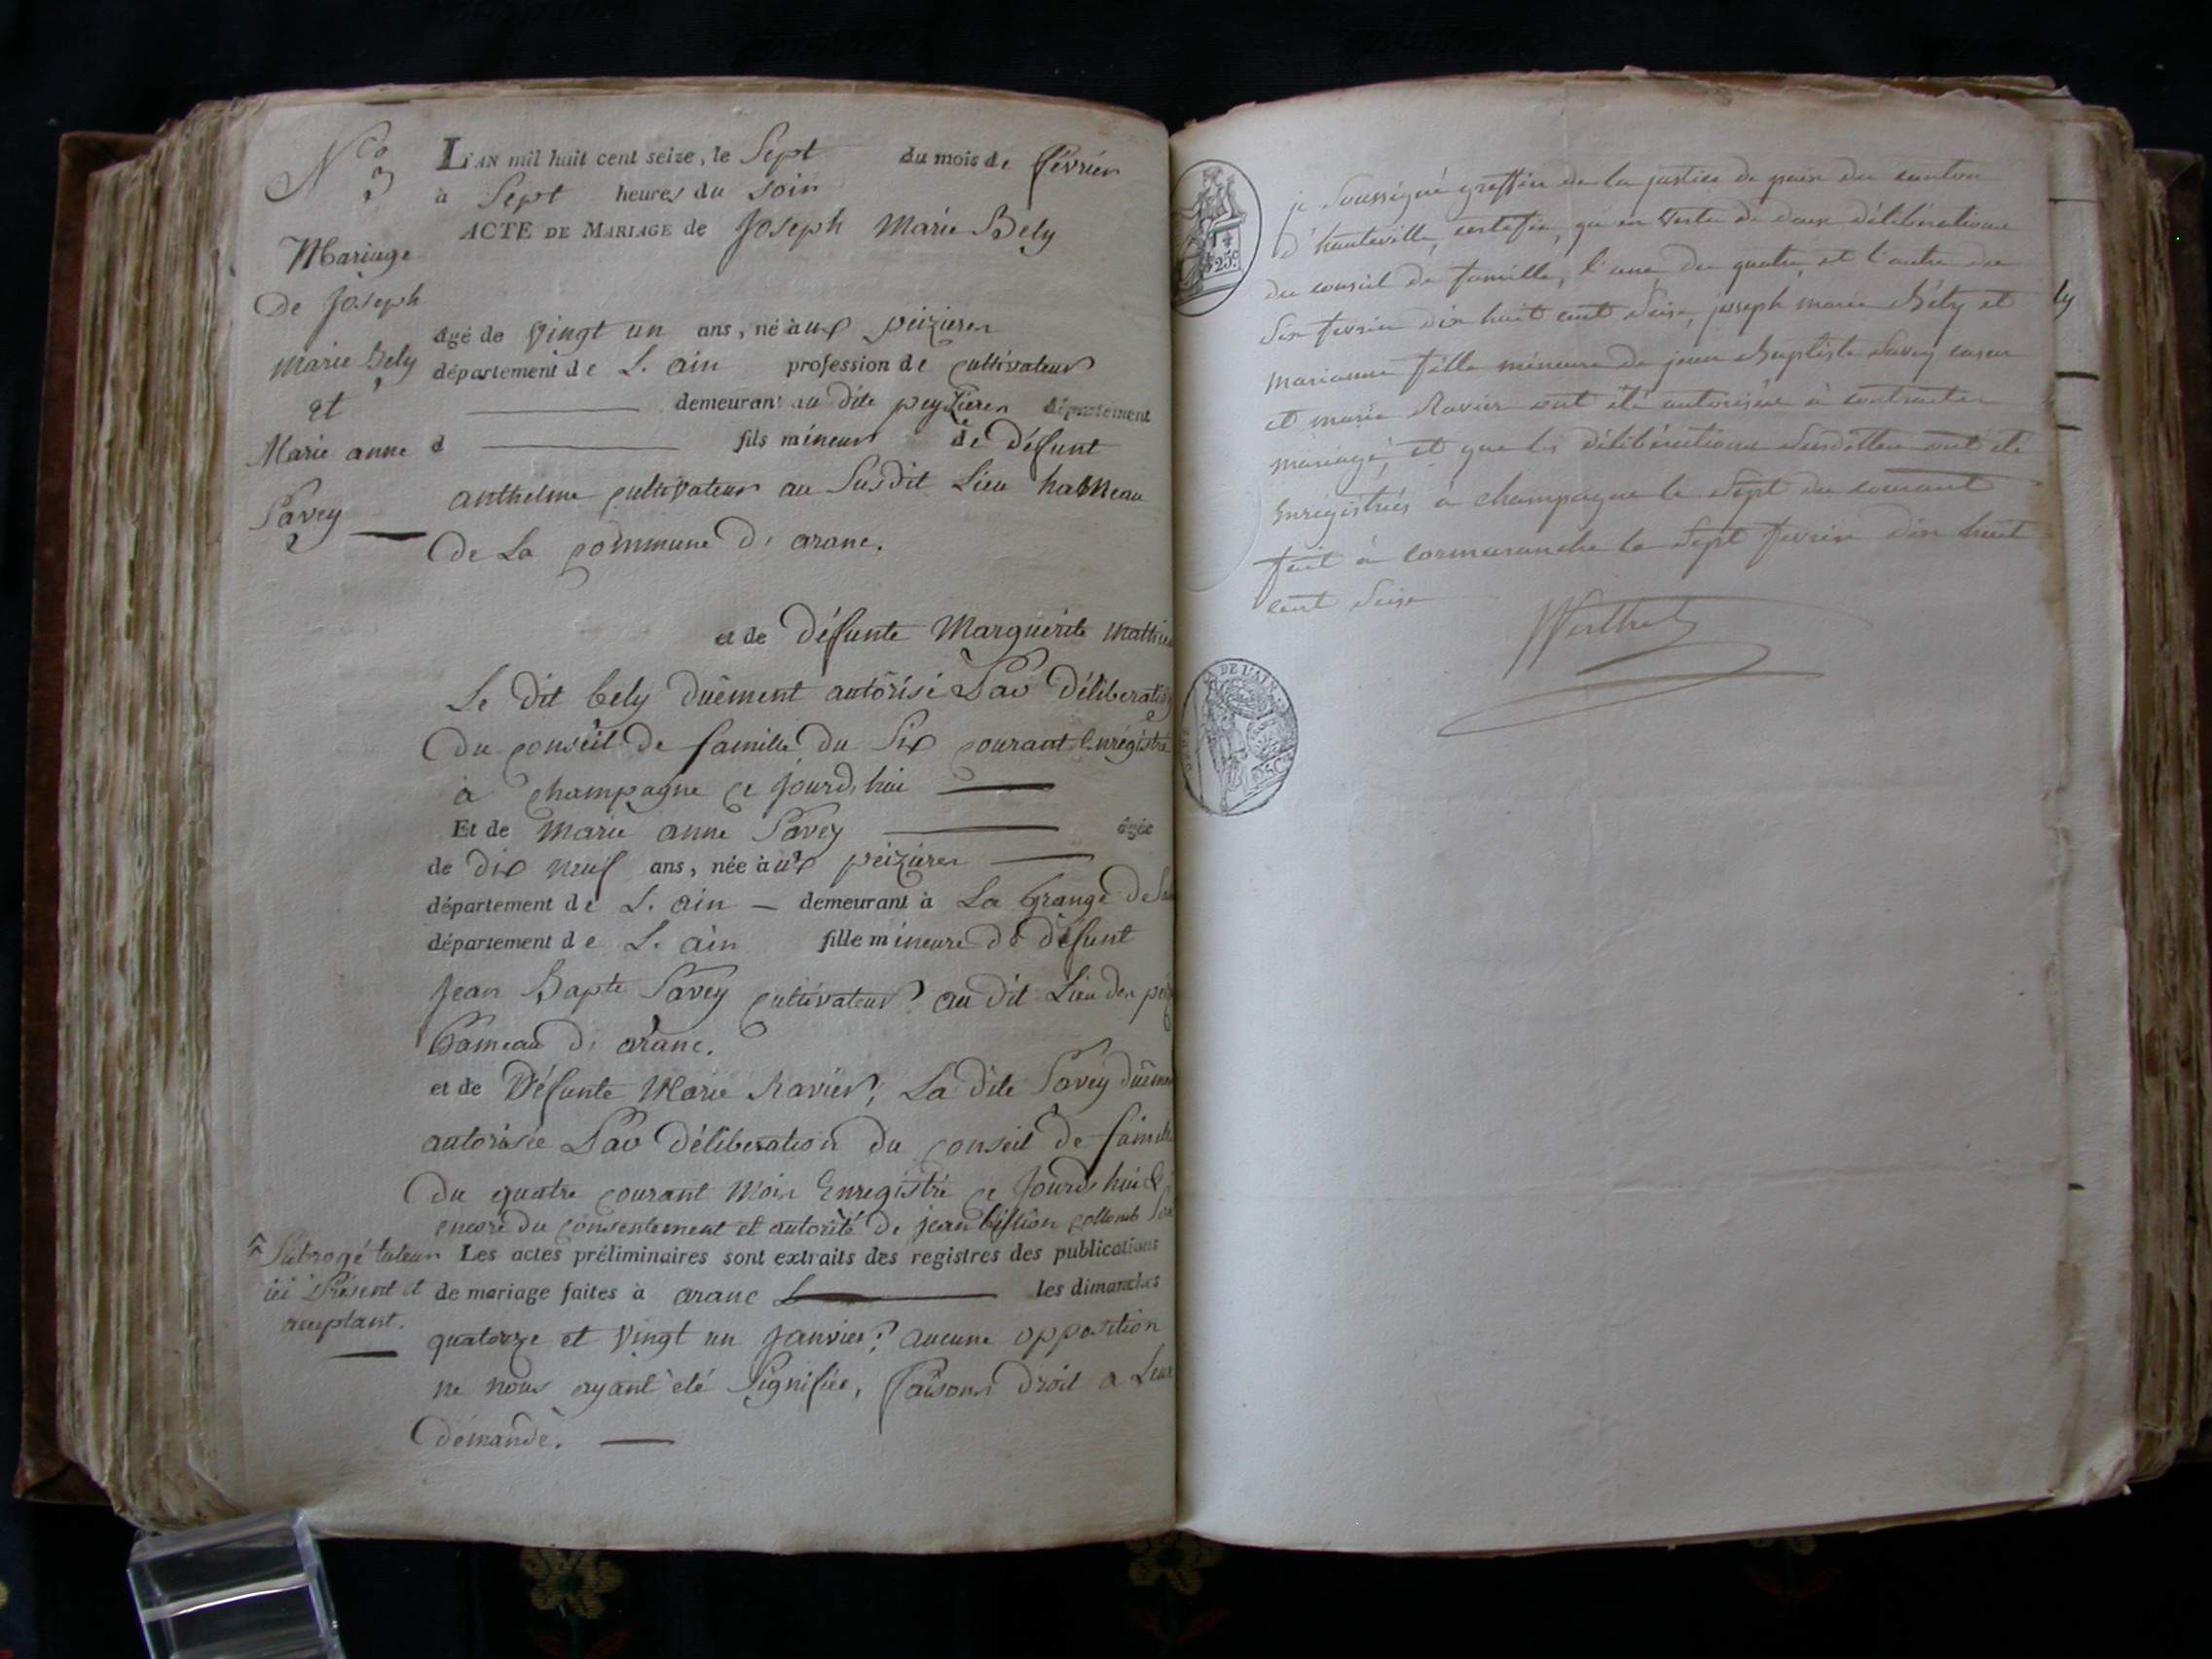 Nco 3
Mariage
De Joseph
Marie Bely
et
Marie anne
Savey
L'AN mil huit cent seize, le Sept du mois de février
à Sept heures du soir
ACTE DE MARIAGE de Joseph Marie Bely
âgé de vingt un ans, né à aux peizieres
département de L. ain profession de cultivateur
demeurant au dite peyzieres département
d fils mineur de défunt
anthelme cultivateur au Susdit Lieu hameau
De La commune D. aranc.
et de défunte Marguerite Mathieu
Le Dit bely duêment autôrisé Par Déliberation
Du conseil De famille Du Six courant Enrégistré
à champagne ce jourd'hui
Et de marie anne Savey âgée
de Dix neuf ans, née à aux peizieres
département de L. ain demeurant à La Grange De
département de L. ain fille mineure De défunt
Jean Bapte Savey cultivateur au Dit Lieu Des
hameau D. aranc.
et de Défunte Marie Ravier, La Dite Savey
autorisée Par Déliberation Du conseil De famille
Du quatre courant Mois Enregistré ce Jourd'hui &
encore du consentement et autorité de jean collomb
Subrogé tuteur
ici Présent et
acceptant.
Les actes préliminaires sont extraits des registres des publications
de mariage faites à aranc les dimanches
quatorze et vingt un Janvier aucune opposition
ne nous ayant été Signifiée, faisons Droit a Leur
Démande.
je soussigné greffier de la justice de paix du canton
d'hauteville, certifie, qu'en vertu de deux délibérations
du conseil de famille, l'une du quatre, et l'autre du
six fevrier dix huit cent seize, joseph marie Bély et
marianne fille mineure de jean Baptiste Savey
et marie Ravier ont été autorisés à contracter
mariage, et que les délibérations susdittes ont été
Enregistrées à champagne le sept du courant
fait à cormaranche le sept fevrier dix huit
cent seize
25c
DE L'AIN
ly